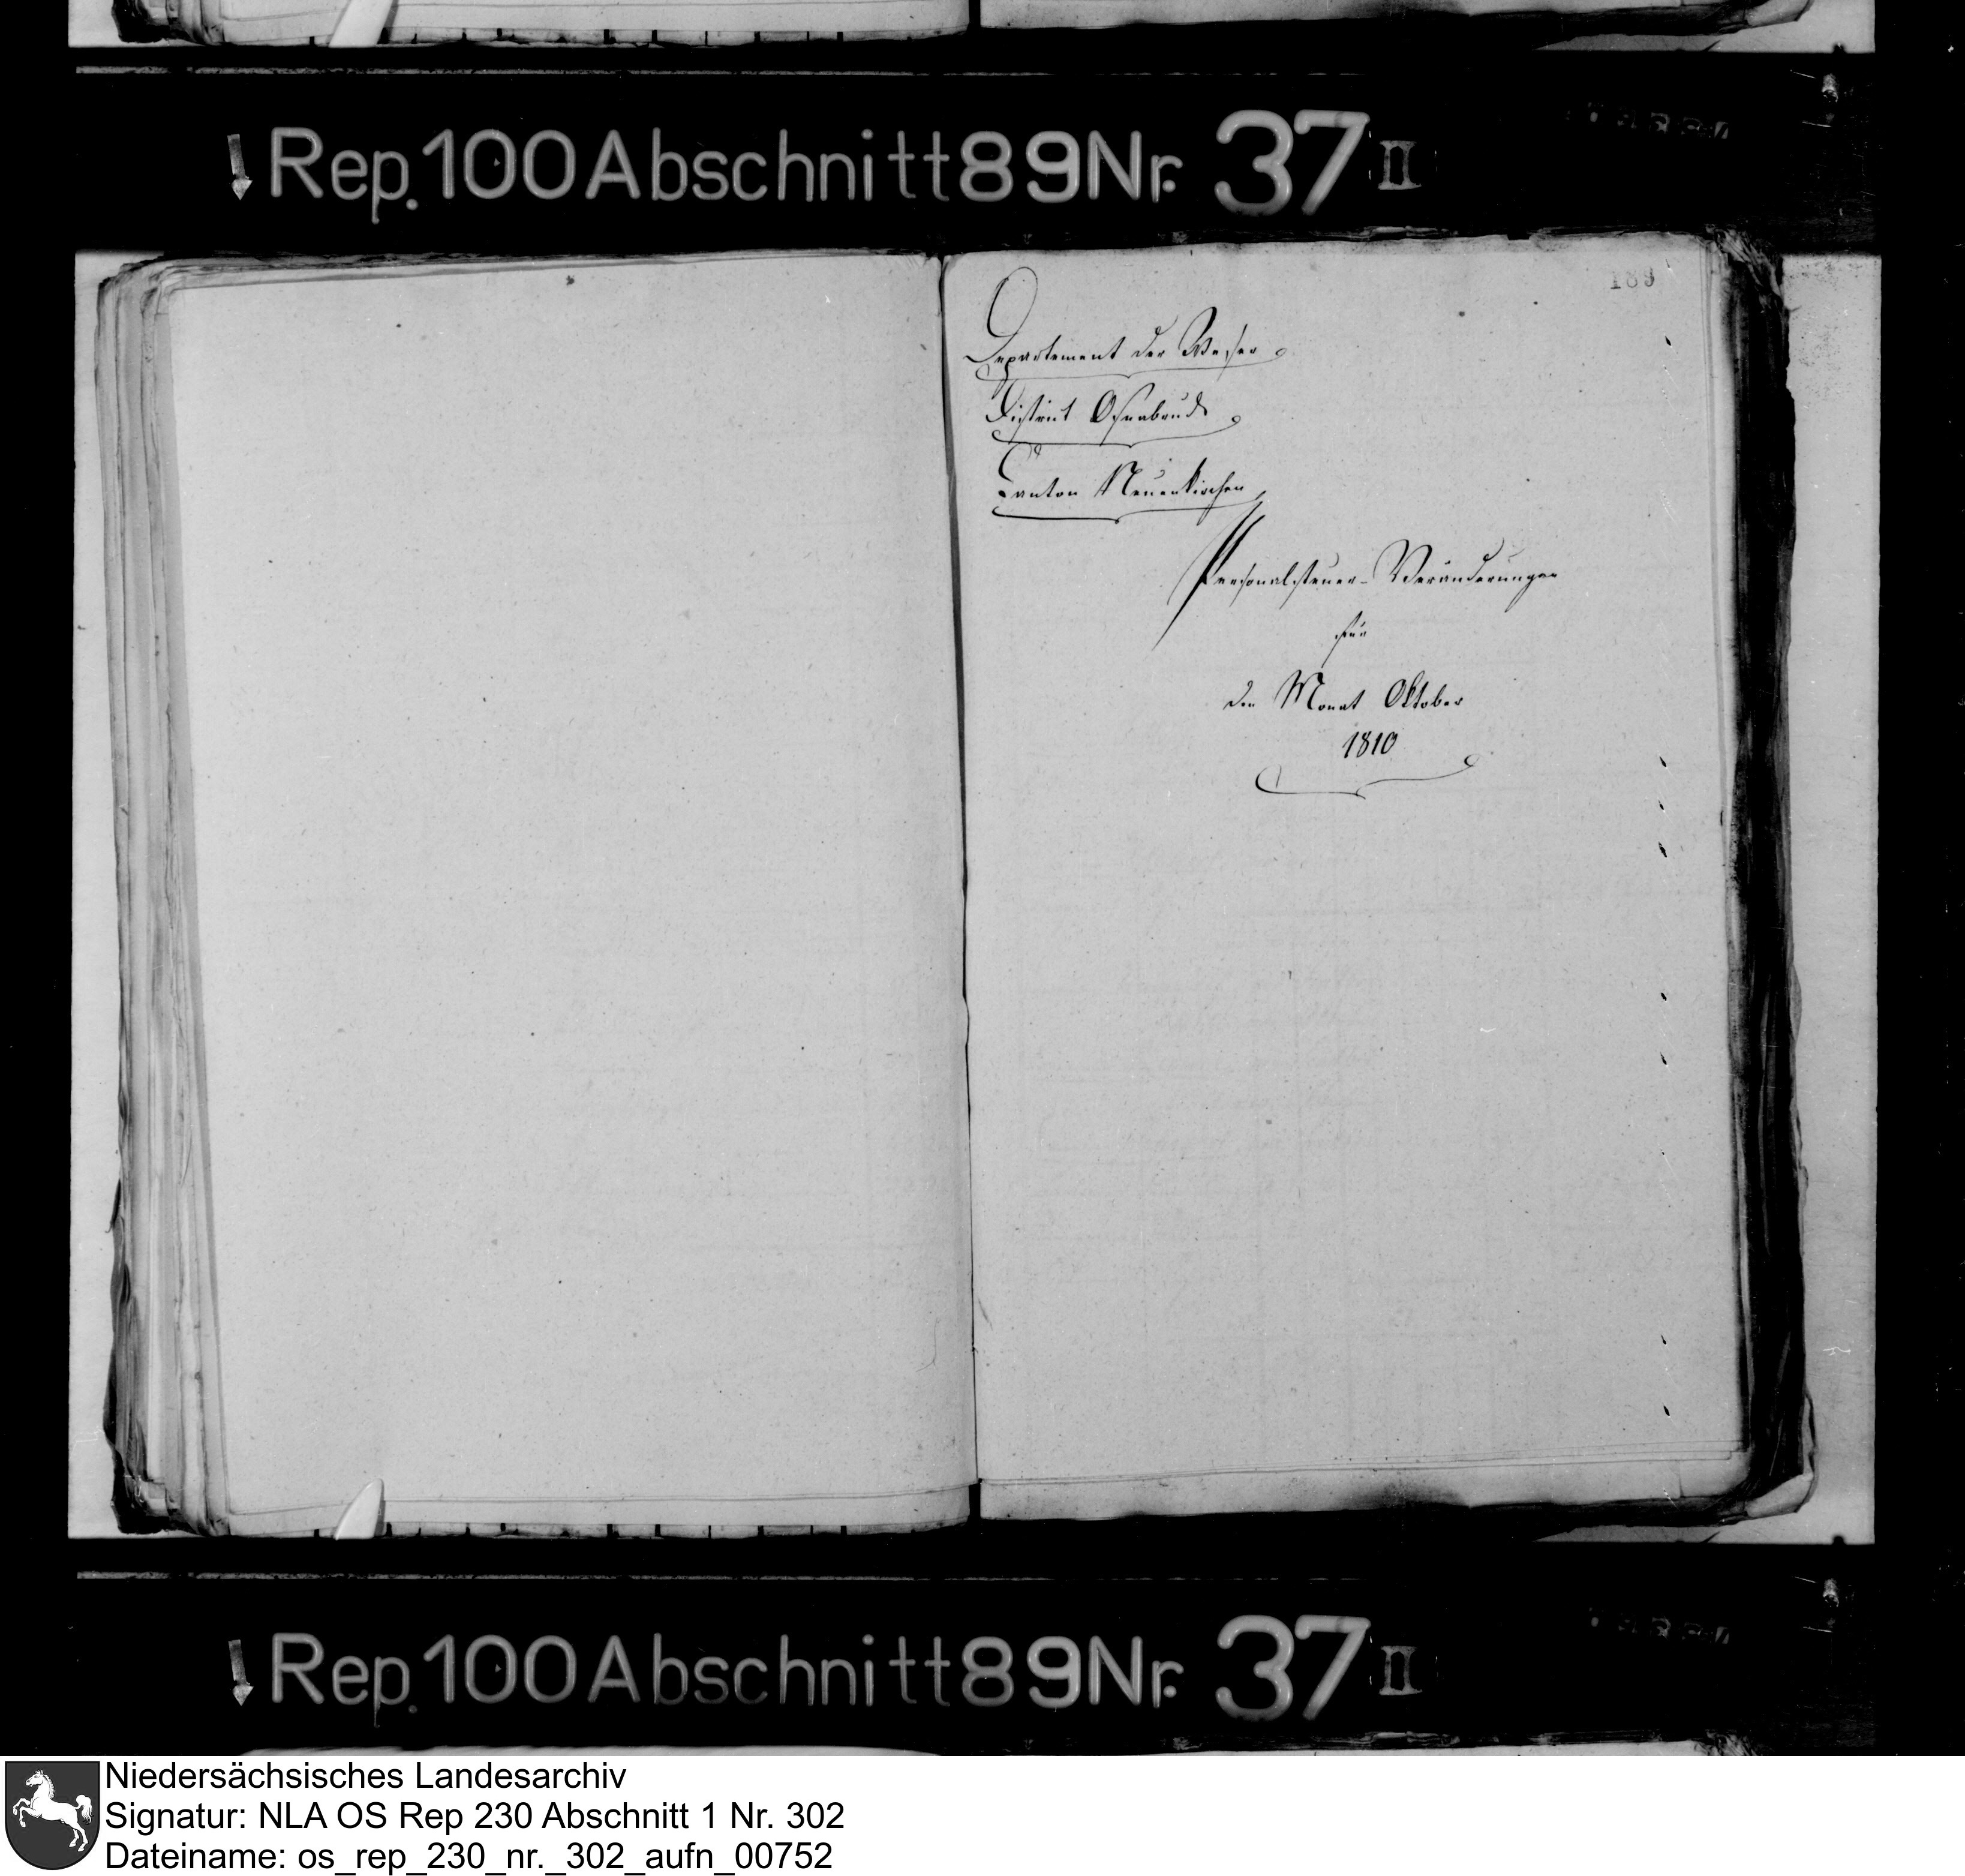 Rep. 100 Abschnitt 89 Nr. 37 II
189
Departement der Weser
District Osnabruck
Canton Neuenkirchen
Personalsteuer-Veränderungen
für
den Monat Oktober
1810
Rep. 100 Abschnitt 89 Nr. 37 II
Niedersächsisches Landesarchiv
Signatur: NLA OS Rep 230 Abschnitt 1 Nr. 302
Dateiname: os_rep_230_nr._302_aufn_00752